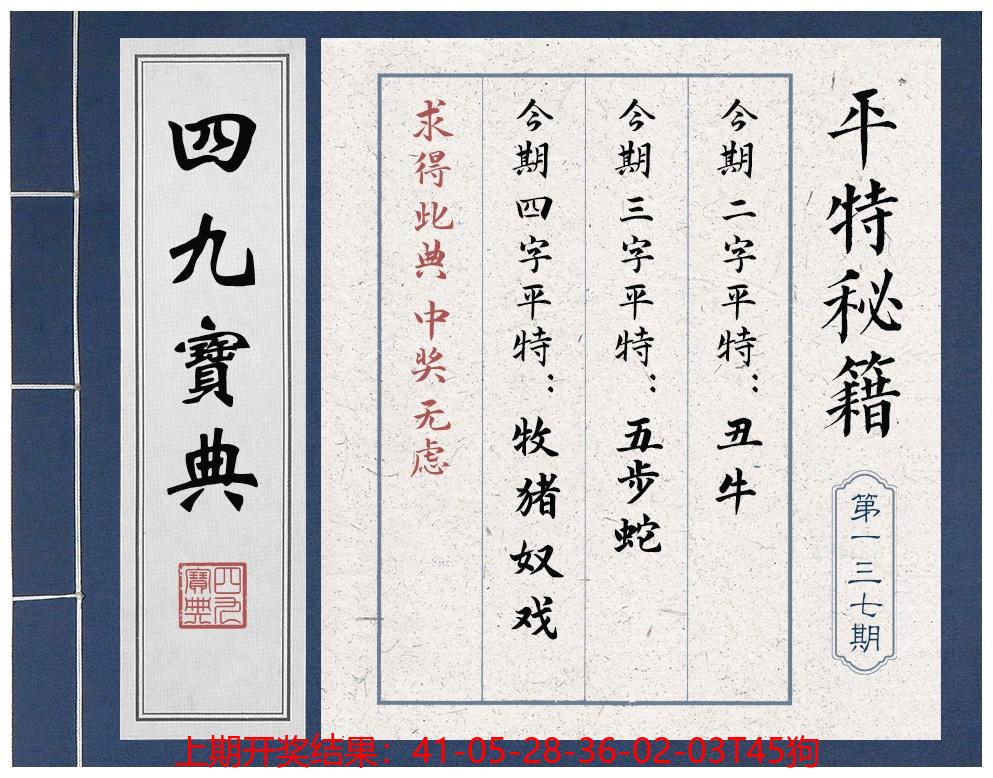 平特秘籍
第一三七期
今期二字平特：丑牛
今期三字平特：五步蛇
今期四字平特：牧猪奴戏
求得此典 中奖无虑
四九寶典
四九寶典
上期开奖结果：41-05-28-36-02-03T45狗